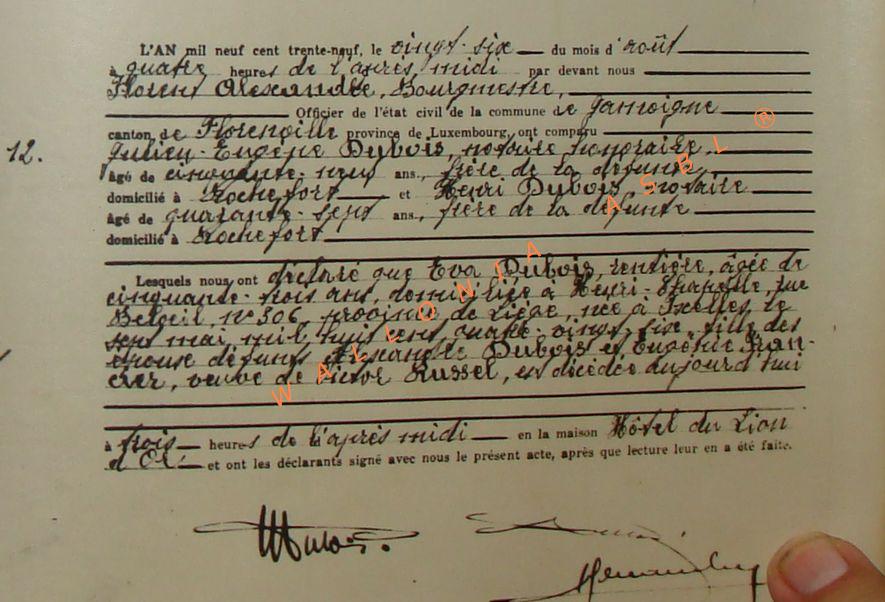 L'AN mil neuf cent trente-neuf, le vingt-six du mois d'août
à quatre heures de l'après midi par devant nous
Florent Alexandre, Bourgmestre,
Officier de l'état civil de la commune de Jamoigne
canton de Florenville province de Luxembourg, ont comparu
12. Julien-Eugène Dubois, notaire honoraire,
âgé de cinquante-neuf ans, frère de la défunte
domicilié à Rochefort et Henri Dubois, notaire
âgé de quarante-sept ans, frère de la défunte
domicilié à Rochefort
Lesquels nous ont déclaré que Eva Dubois, rentière, âgée de
cinquante-trois ans, domiciliée à Henri-Chapelle, rue
Beloeil, N° 306, province de Liège, née à Ixelles le
sept mai mil huit cent quatre-vingt-six, fille des
époux défunts Alexandre Dubois et Eugénie
veuve de Victor Russel, est décédée aujourd'hui
à trois heures de l'après midi en la maison Hôtel du Lion
d'Or. et ont les déclarants signé avec nous le présent acte, après que lecture leur en a été faite.
WALLONIA ASBL ®